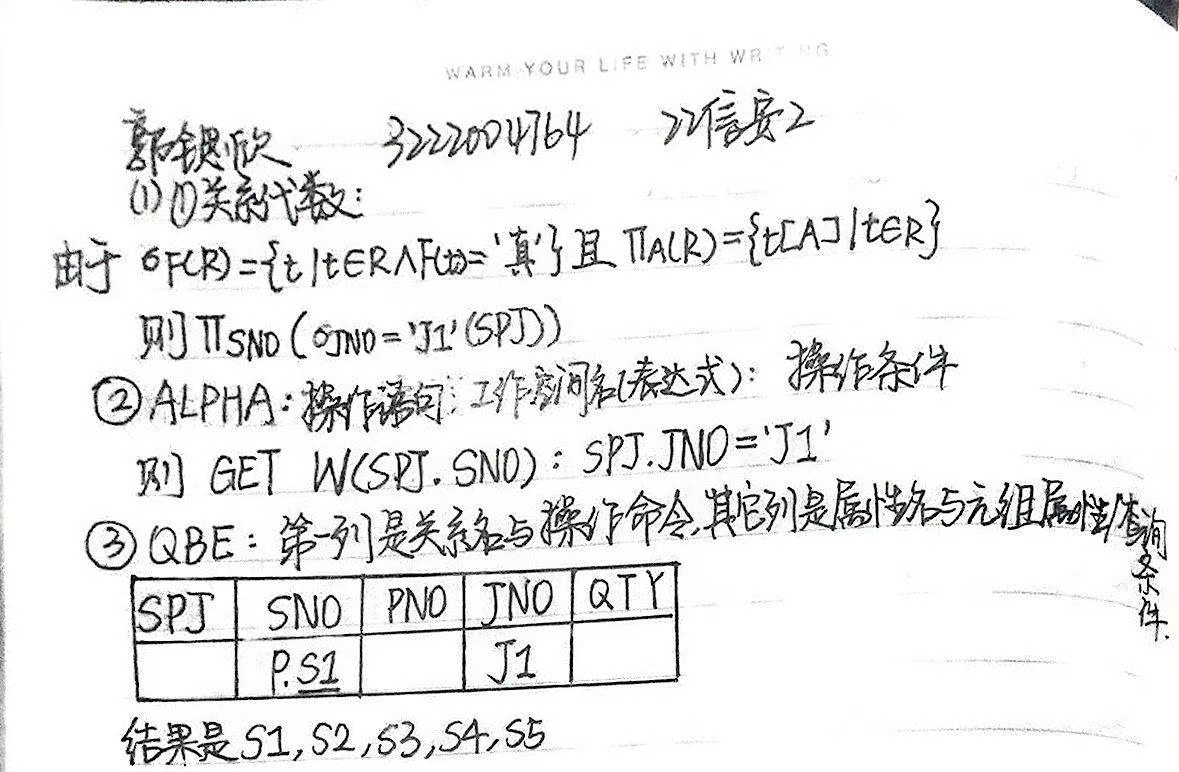 WARM YOUR LIFE WITH WRITING
郭锶欣 3222004764 22信安2
(1)①关系代数:
由于 σF(R)={t|t∈R∧F(t)='真'}且 ΠA(R)={t[A]|t∈R}
则ΠSNO(σJNO='J1'(SPJ))
②ALPHA:操作语句 工作空间名(表达式): 操作条件
则 GET W(SPJ.SNO): SPJ.JNO='J1'
③QBE: 第一列是关系名与操作命令,其它列是属性名与元组属性/查询条件.
SPJ SNO PNO JNO QTY
P.S1 J1
结果是S1,S2,S3,S4,S5